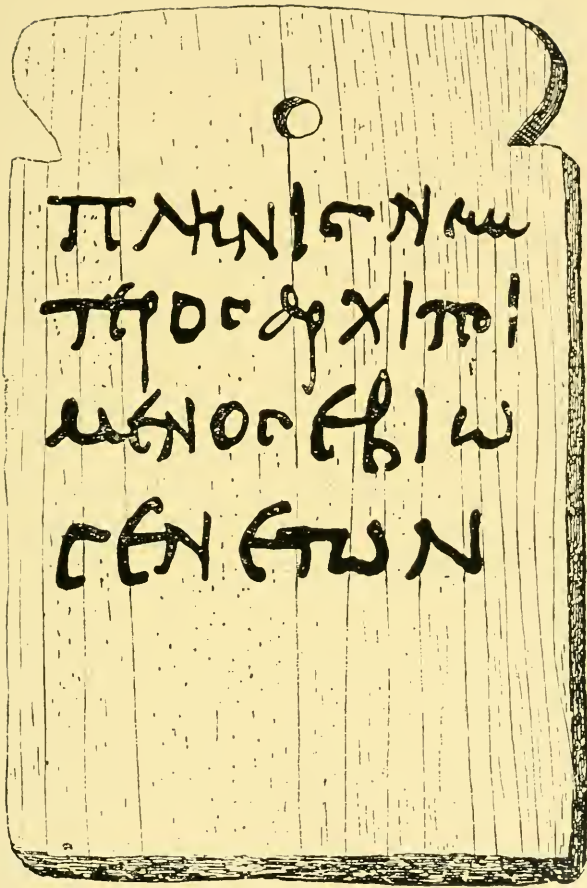 ΠΛΗΝΙϹ ΝΕΩ
ΤΕΡΟϹ ΑΡΧΙΠΟΙ
ΜΕΝΟϹ ΕΒΙΩ
ϹΕΝ ΕΤΩΝ